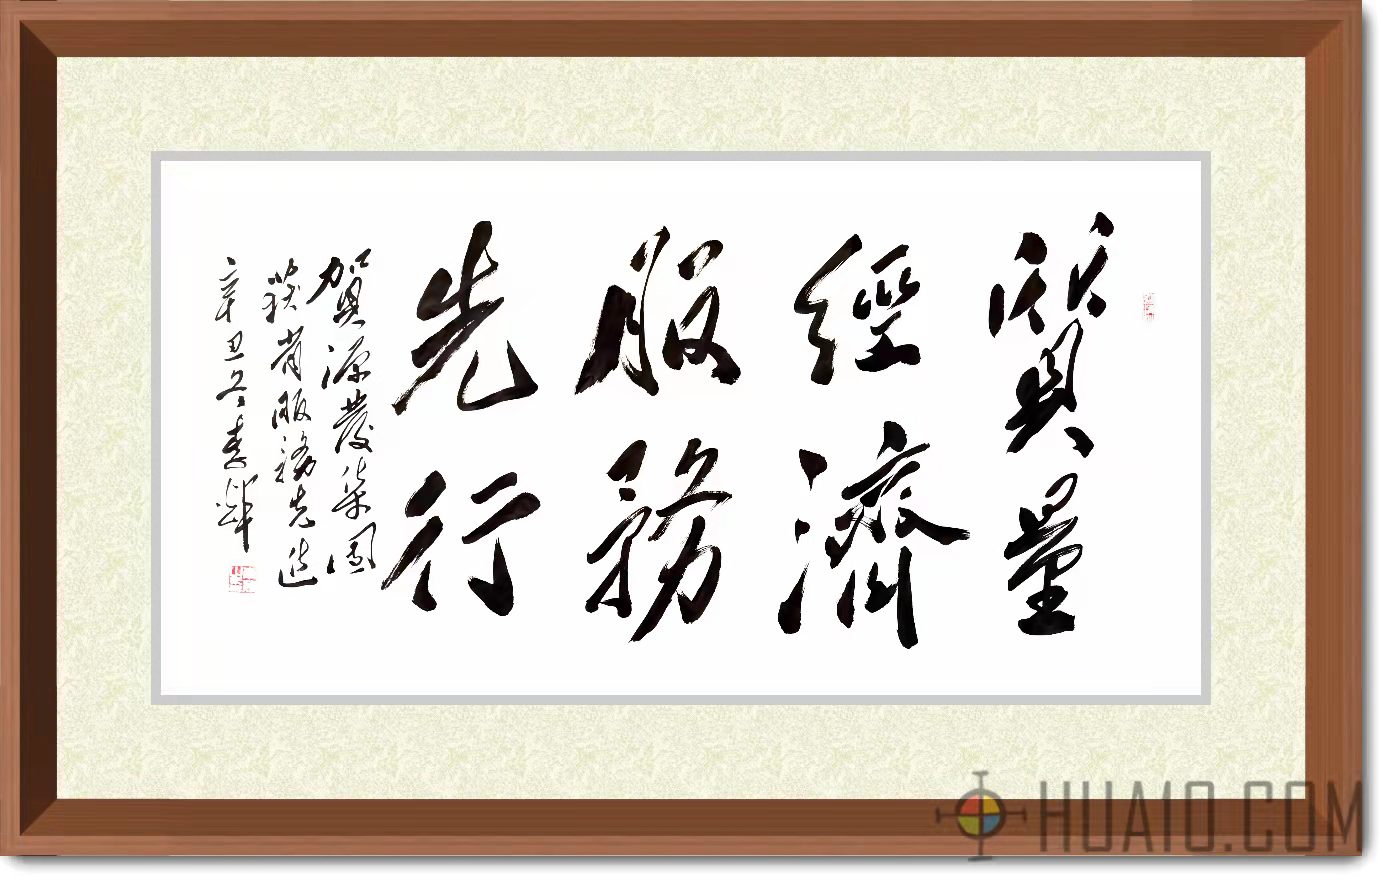 質量
經濟
服務
先行
賀源發柒團
获省服務先進
辛丑冬春輝
HUAIO.COM